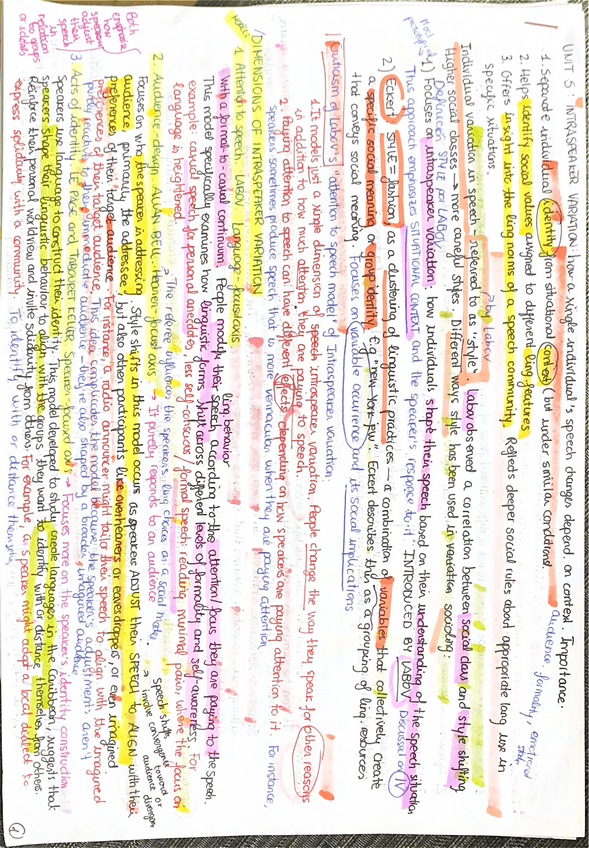 UNIT 5: INTRASPEAKER VARIATION: how a single individual's speech changes depend. on context. Importance:
1. Separate individual identity from situational context (but under similar conditions).
Audience, formality, emotional state
2. Helps identify social values assigned to different lang features
3. Offers insight into the ling norms of a speech community. Reflects deeper social rules about appropriate lang use in
specific situations.
by Labov
Individual variation in speech referred to as "style". Labov observed a correlation between social class and style shifting
Higher social classes → more careful styles. Different ways style has been used in variation socioling:
Defines STYLE for LABOV
1) Focuses on intraspeaker variation: how individuals shape their speech based on their understanding of the speech situation
This approach emphasizes SITUATIONAL CONTEXT and the speaker's response to it. INTRODUCED BY LABOV Discussed on IV
2) Eckert STYLE = fashion as a clustering of linguistic practices — a combination of variables that collectively create
a specific social meaning or group identity. E.g "new York jew" Eckert describes this as a grouping of ling resources
that conveys social meaning. Focuses on variable occurrence and its social implications
Criticism of Labov's "attention to speech model of intraspeaker variation:
1. It models just a single dimension of speech intraspeaker variation. People change the way they speak for other reasons
in addition to how much attention they are paying to speech.
2. Paying attention to speech can have different effects depending on how speakers are paying attention to it. For instance,
speakers sometimes produce speech that is more vernacular when they are paying attention
MODELS / DIMENSIONS OF INTRASPEAKER VARIATION
1. Attention to speech LABOV Language-focus axis
ling behavior
This model specifically examines how linguistic forms shift across different levels of formality and self-awareness. For
with a formal-to-casual continuum. People modify their speech according to the attention/focus they are paying to the speech.
example: casual speech for personal anecdotes, less self-conscious / formal speech reading minimal pairs, where the focus on
language is heightened.
2. Audience design ALLAN BELL Hearer-focus axis → It purely responds to an audience
The referee influences the speaker's ling choices as a social model
Speech shifts involve convergence toward or audience divergence
Focuses on who the speaker is addressing. Style shifts in this model occurs as speakers ADJUST their SPEECH to ALIGN with their
audience, primarily the addressee, but also other participants like overhearers or eavesdroppers, or even imagined
preference of their target audience. For instance, a radio announcer might tailor their speech to align with the imagined
preference of their target audience. This idea complicates the model because the speaker's adjustments aren't
purely reactive to the immediate audience - they're also shaped by a broader, imagined audience
3. Acts of identity LE PAGE and TABOURET KELLER Speaker-focused axis → Focuses more on the speaker's identity construction
Speakers use language to construct their identity. This model developed to study creole languages in the Caribbean, suggest that
speakers shape their linguistic behaviour to align with the groups they want to identify with or distance themselves from others.
Reinforce their personal worldview and invite solidarity from others. For example, a speaker might adopt a local dialect to
express solidarity with a community. To identify with or distance themselves
Both emphasize how speakers adjust their speech in relation to groups or ideals
1